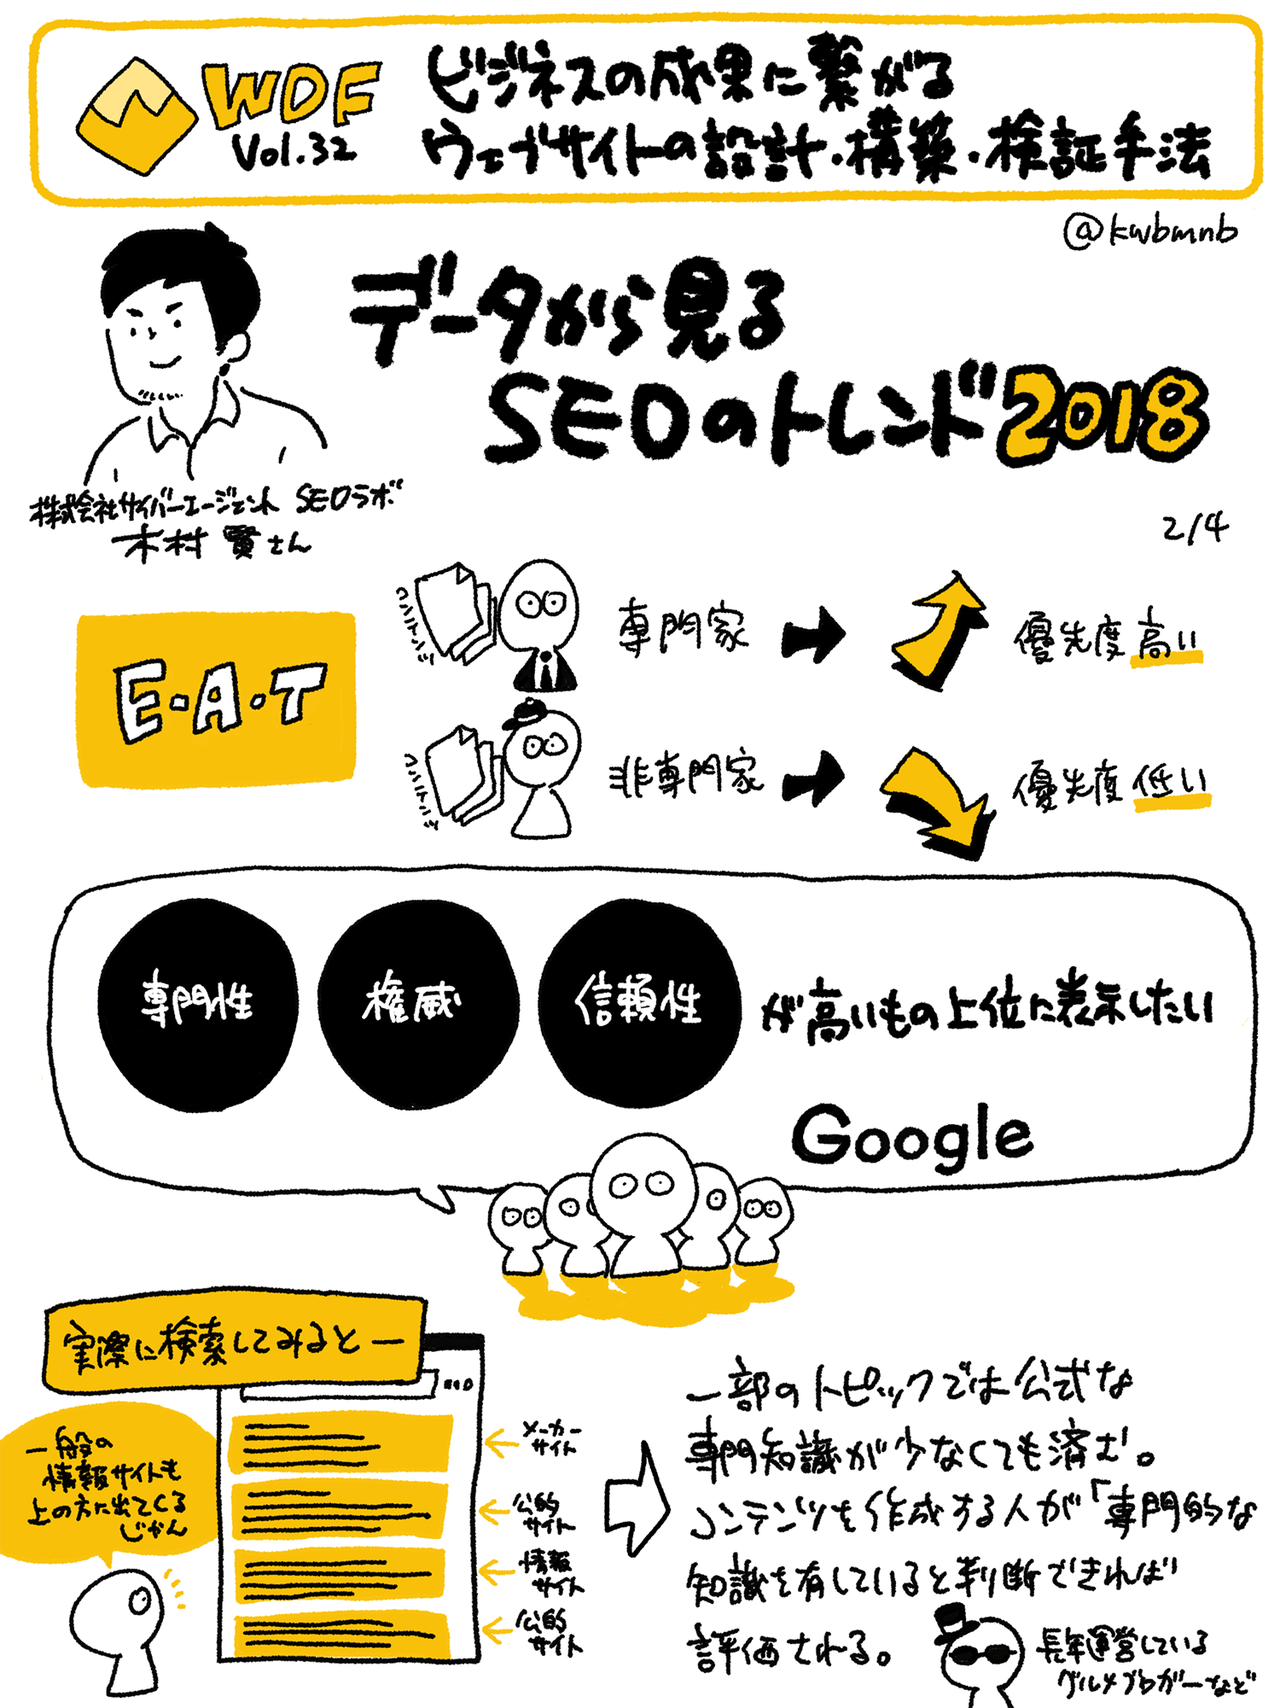 WDF
Vol.32
ビジネスの成果に繋がる
ウェブサイトの設計・構築・検証手法
@kwbmnb
データから見る
SEOのトレンド2018
株式会社サイバーエージェント SEOラボ
木村 賢さん
2/4
E・A・T
コンテンツ
専門家
優先度高い
コンテンツ
非専門家
優先度低い
専門性
権威
信頼性
が高いもの上位に表示したい
Google
実際に検索してみると―
一般の
情報サイトも
上の方に出てくる
じゃん
メーカー
サイト
公的
サイト
情報
サイト
公的
サイト
一部のトピックでは公式な
専門知識が少なくても済む。
コンテンツを作成する人が「専門的な
知識を有していると判断できれば
評価される。
長年運営している
グルメブロガーなど